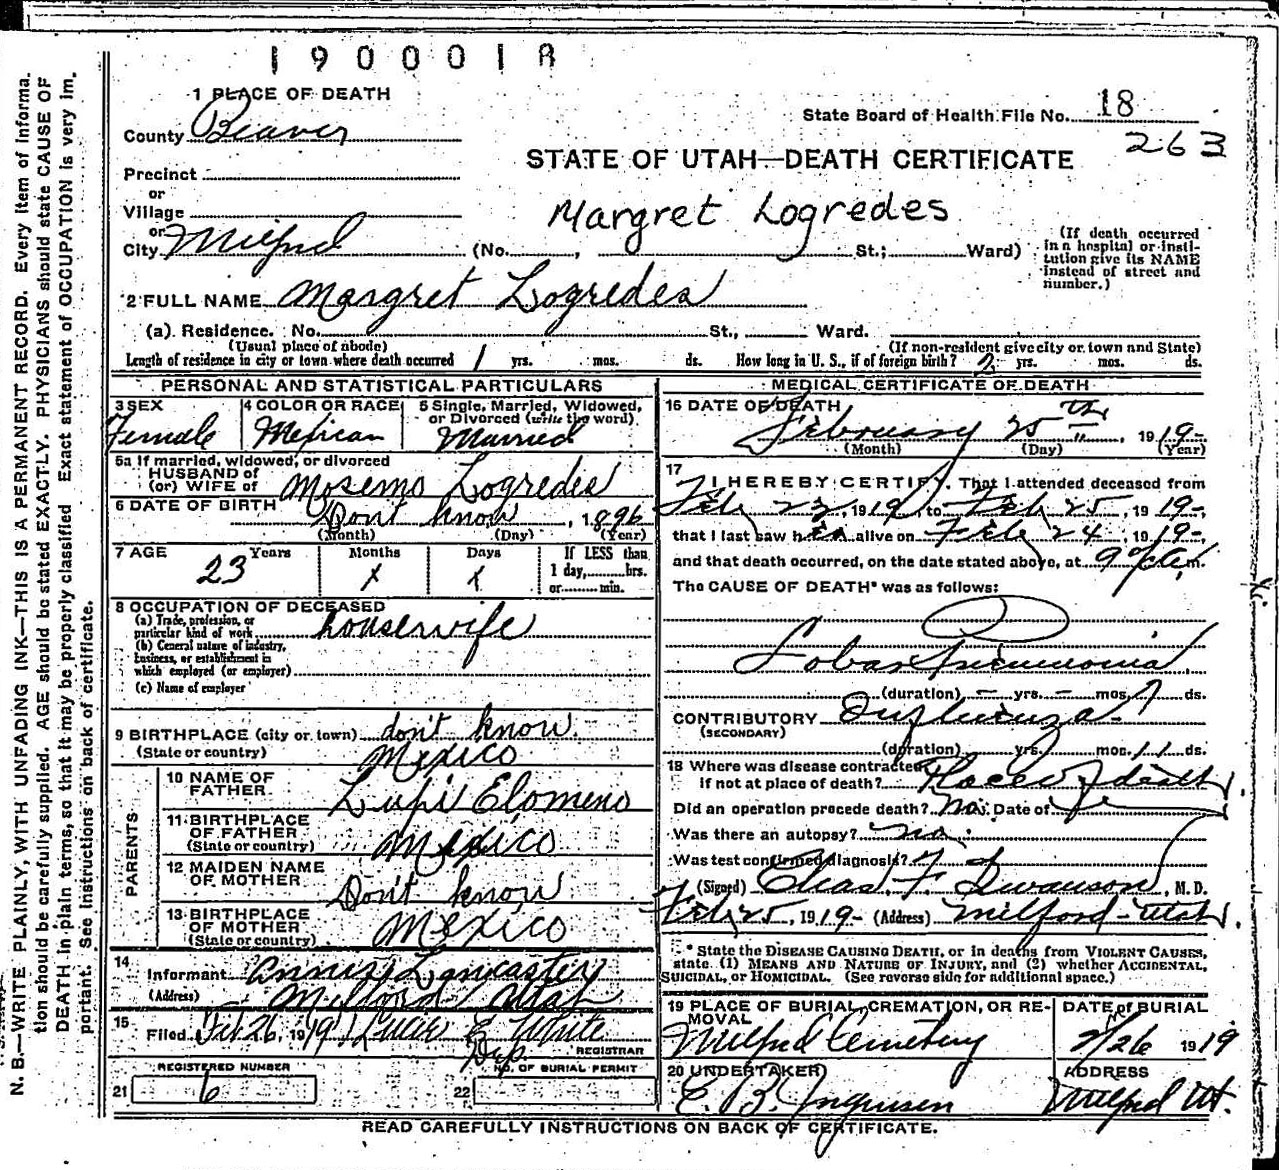 1900018
1 PLACE OF DEATH
State Board of Health File No. 18
County Beaver
263
STATE OF UTAH—DEATH CERTIFICATE
Precinct
or
Village
Margret Logredes
or
City Milford (No. St.; Ward)
(If death occurred in a hospital or insti-
tution give its NAME instead of street and number.)
2 FULL NAME Margret Logredes
(a). Residence. No. St., Ward.
(Usual place of abode) (If non-resident give city or town and State)
Length of residence in city or town where death occurred 1 yrs. mos. ds. How long in U. S., if of foreign birth? 2 yrs. mos. ds.
PERSONAL AND STATISTICAL PARTICULARS
3 SEX Female
4 COLOR OR RACE Mexican
5 Single, Married, Widowed, or Divorced (write the word) Married
5a If married, widowed, or divorced
HUSBAND of
(or) WIFE of Mosemo Logredes
6 DATE OF BIRTH Don't know, 1896
(Month) (Day) (Year)
7 AGE 23 Years x Months x Days
If LESS than
1 day, hrs.
or min.
8 OCCUPATION OF DECEASED
(a) Trade, profession, or
particular kind of work housewife
(b) General nature of industry,
business, or establishment in
which employed (or employer)
(c) Name of employer
9 BIRTHPLACE (city or town) don't know
(State or country) Mexico
PARENTS
10 NAME OF FATHER Lupi Elomeno
11 BIRTHPLACE OF FATHER Mexico
(State or country)
12 MAIDEN NAME OF MOTHER Don't know
13 BIRTHPLACE OF MOTHER Mexico
(State or country)
14
Informant Annie Lancaster
(Address) Milford Utah
15
Filed Feb 26, 1919 E White
Dep REGISTRAR
REGISTERED NUMBER
NO. OF BURIAL PERMIT
21 6
22
MEDICAL CERTIFICATE OF DEATH
16 DATE OF DEATH
February 25th, 1919
(Month) (Day) (Year)
17
I HEREBY CERTIFY, That I attended deceased from
Feb 23, 1919, to Feb 25, 1919,
that I last saw her alive on Feb 24, 1919
and that death occurred, on the date stated above, at 9 a m.
The CAUSE OF DEATH* was as follows:
Lobar Pneumonia
(duration) — yrs. — mos. 7 ds.
CONTRIBUTORY Influenza
(SECONDARY)
(duration) yrs. mos. 11 ds.
18 Where was disease contracted
if not at place of death? Place of death
Did an operation precede death? No. Date of
Was there an autopsy? no.
Was test confirmed diagnosis?
(Signed) Chas. F. Swanson, M. D.
Feb 25, 1919 (Address) Milford - Utah.
* State the DISEASE CAUSING DEATH, or in deaths from VIOLENT CAUSES,
state (1) MEANS AND NATURE OF INJURY, and (2) whether ACCIDENTAL,
SUICIDAL, or HOMICIDAL. (See reverse side for additional space.)
19 PLACE OF BURIAL, CREMATION, OR RE-
MOVAL
Milford Cemetery
DATE of BURIAL
2/26 1919
20 UNDERTAKER
E. B. Jorgensen
ADDRESS
Milford Ut.
READ CAREFULLY INSTRUCTIONS ON BACK OF CERTIFICATE.
N. B.—WRITE PLAINLY, WITH UNFADING INK—THIS IS A PERMANENT RECORD. Every item of informa-
tion should be carefully supplied. AGE should be stated EXACTLY. PHYSICIANS should state CAUSE OF
DEATH in plain terms, so that it may be properly classified. Exact statement of OCCUPATION is very im-
portant. See instructions on back of certificate.